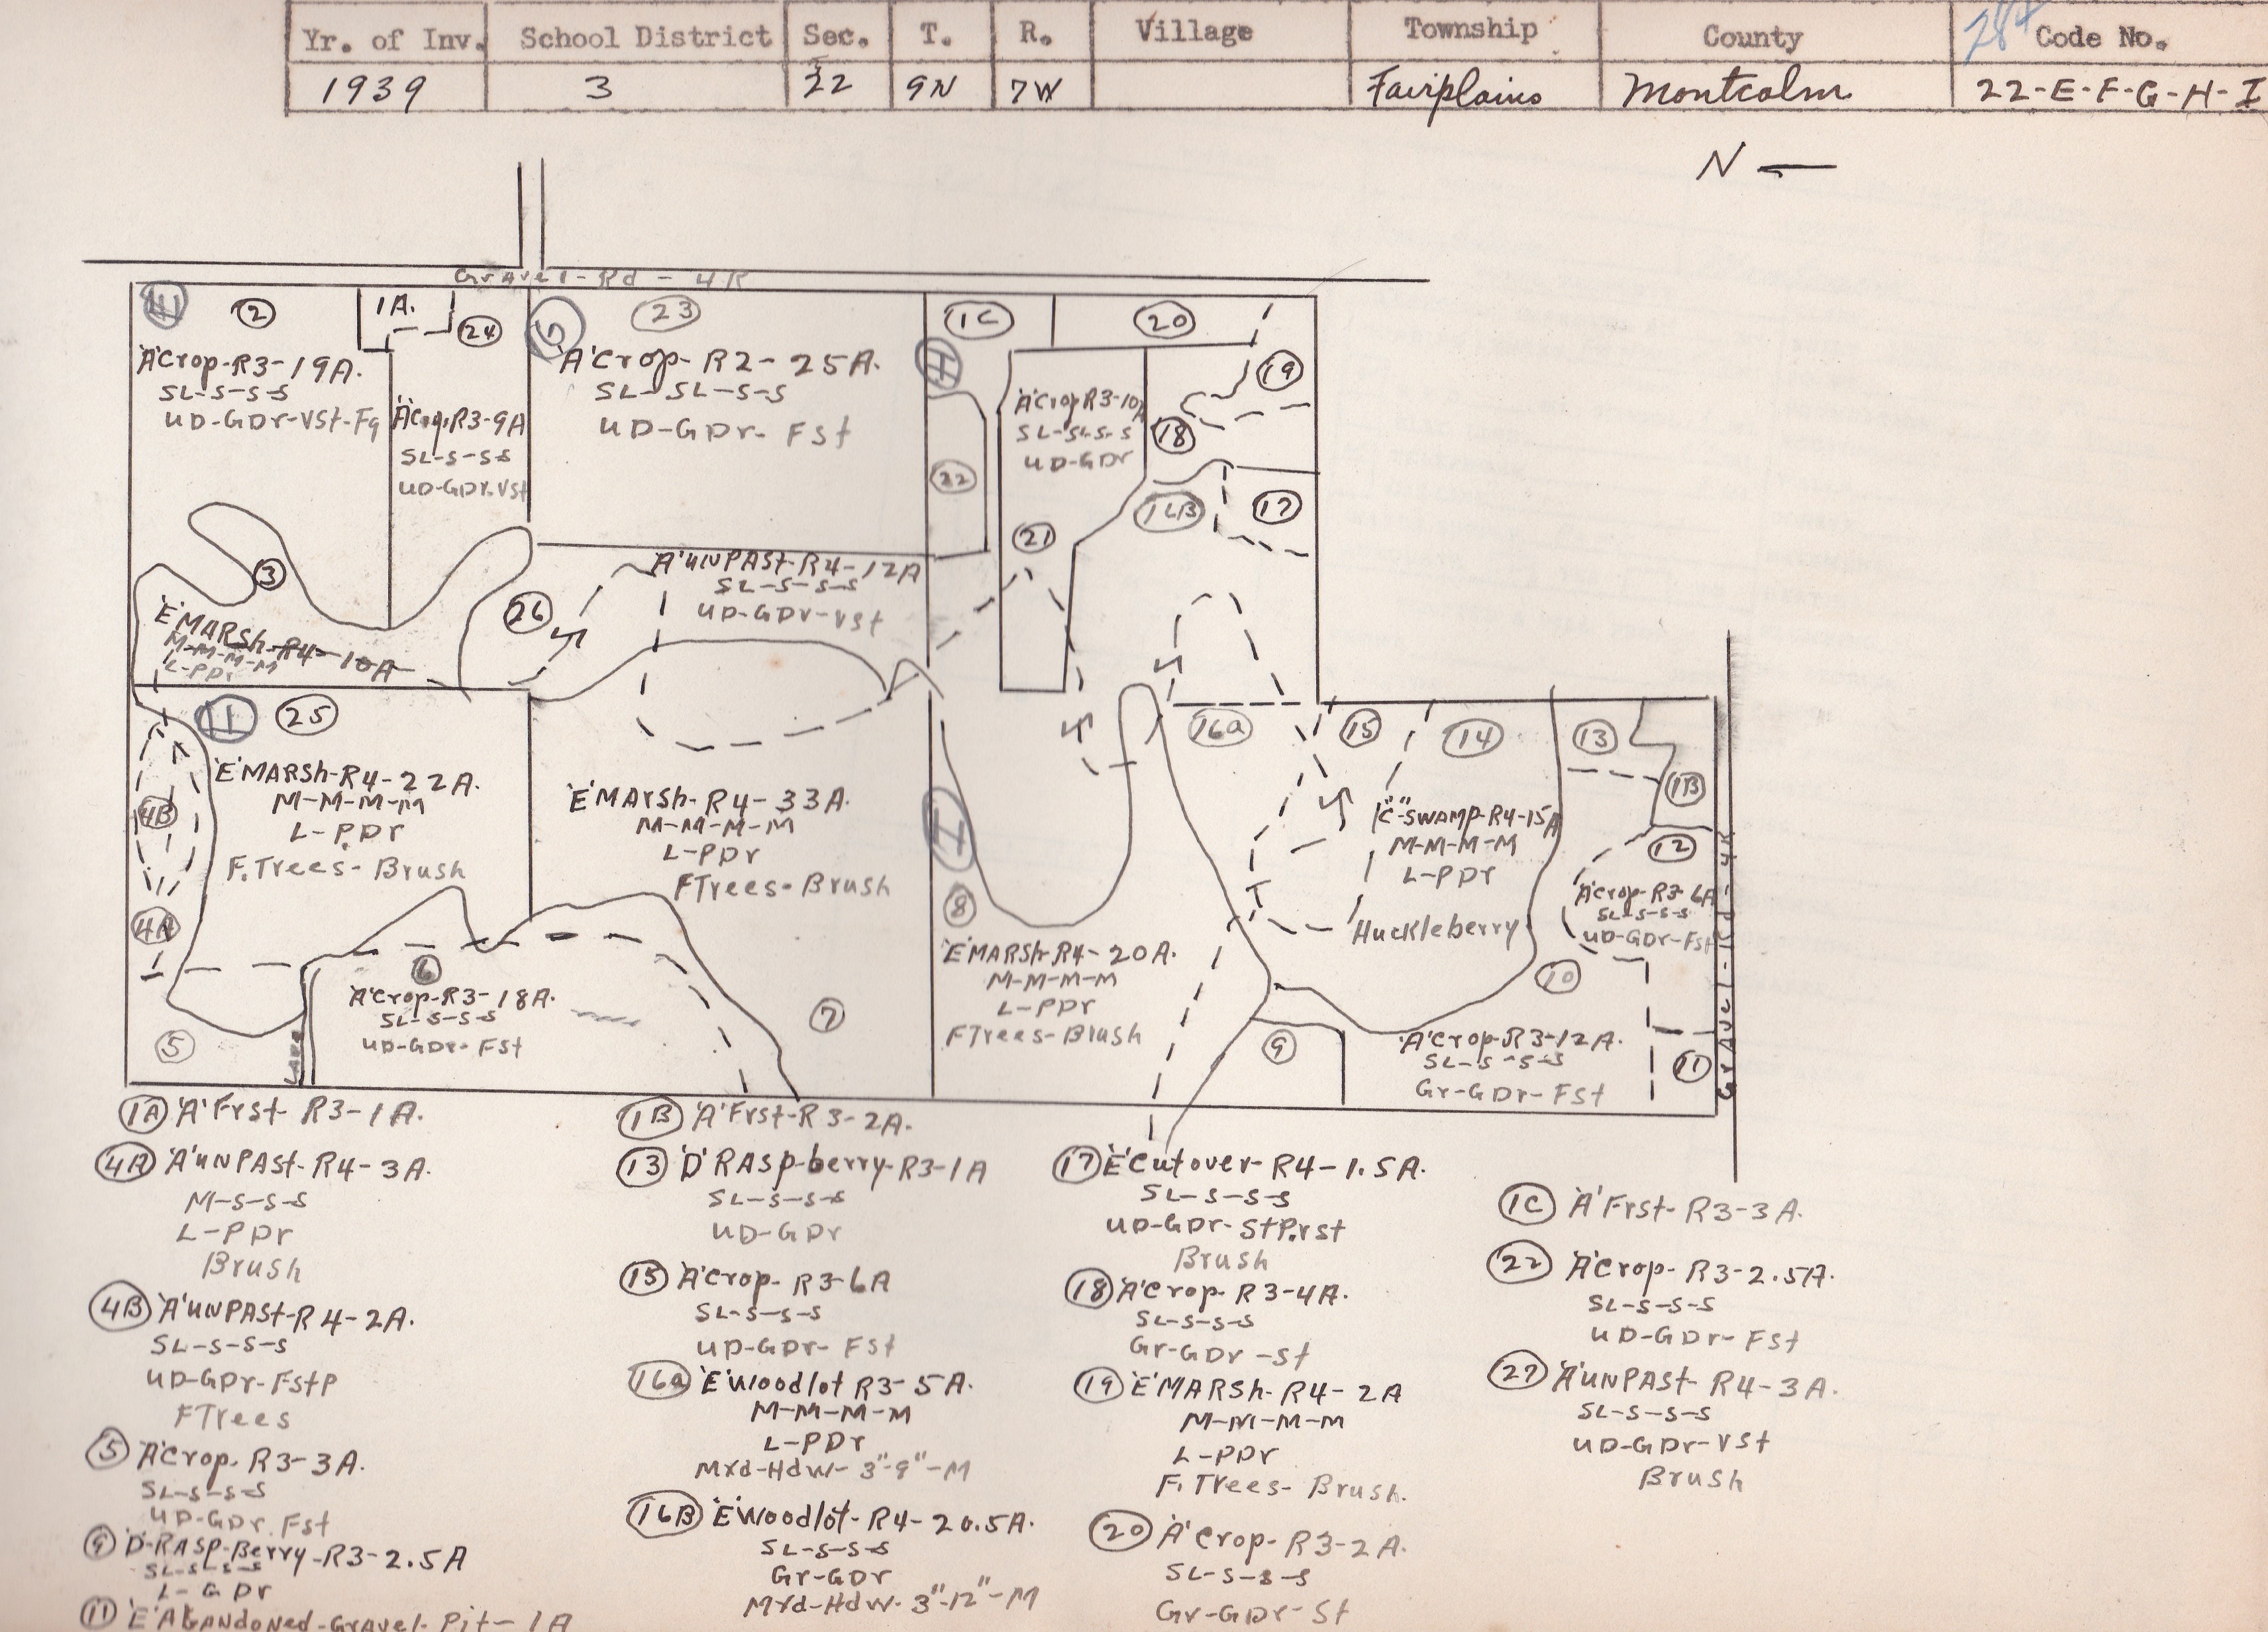 284
Yr. of Inv. School District Sec. T. R. Village Township County Code No.
1939 3 22 9N 7W Fairplains Montcalm 22-E-F-G-H-I
N
Gravel-Rd-4R
2 1A. 24 G 23 1C 20
'A'Crop-R3-19A.
SL-S-S-S
UD-GDr-VSt-Fg
'A'Crop-R3-9A
SL-S-S-S
UD-GDr-VSt
'A'Crop-R2-25A.
SL-SL-S-S
UD-GDr-FSt
H
22
'A'Crop R3-10A
SL-SL-S-S
UD-GDr
21
19
18
16B
17
3
'E'MARSh-R4-10A
M-M-M-M
L-PDr
26
'A'UNPASt-R4-12A
SL-S-S-S
UD-GDr-VSt
25
'E'MARSh-R4-22A.
M-M-M-M
L-PDr
F.Trees-Brush
4B
4A
'E'MARSh-R4-33A.
M-M-M-M
L-PDr
FTrees-Brush
I
8
'E'MARSh-R4-20A.
M-M-M-M
L-PDr
FTrees-Brush
16a 15 14 13
1B
"C"-SWAMP-R4-15A
M-M-M-M
L-PDr
Huckleberry
12
'A'Crop-R3-6A
SL-S-S-S
UD-GDr-FSt
Gravel-Rd-4R
6
'A'Crop-R3-18A.
SL-S-S-S
UD-GDr-FSt
5
Lane
7
9
10
'A'Crop-R3-12A.
SL-S-S-S
Gr-GDr-FSt
11
1A 'A'Frst-R3-1A.
4A 'A'UNPASt-R4-3A.
M-S-S-S
L-PDr
Brush
4B 'A'UNPASt-R4-2A.
SL-S-S-S
UD-GDr-FStP
FTrees
5 'A'Crop-R3-3A.
SL-S-S-S
UD-GDr.FSt
9 'D'-RASP-Berry-R3-2.5A
SL-S-S-S
L-GDr
11 'E'ABANdoNed-GrAveL-Pit-1A
1B 'A'Frst-R3-2A.
13 'D'RASp-berry-R3-1A
SL-S-S-S
UD-GDr
15 'A'Crop-R3-6A
SL-S-S-S
UD-GDr-FSt
16a 'E'Woodlot R3-5A.
M-M-M-M
L-PDr
Mxd-Hdw-3"-9"-M
16B 'E'Woodlot-R4-20.5A.
SL-S-S-S
Gr-GDr
Mxd-Hdw-3"-12"-M
17 'E'Cutover-R4-1.5A.
SL-S-S-S
UD-GDr-StP.rst
Brush
18 'A'Crop-R3-4A.
SL-S-S-S
Gr-GDr-St
19 'E'MARSh-R4-2A
M-M-M-M
L-PDr
F.Trees-Brush.
20 'A'Crop-R3-2A.
SL-S-S-S
Gr-GDr-St
1C 'A'Frst-R3-3A.
22 'A'Crop-R3-2.5A.
SL-S-S-S
UD-GDr-FSt
27 'A'UNPASt-R4-3A.
SL-S-S-S
UD-GDr-VSt
Brush